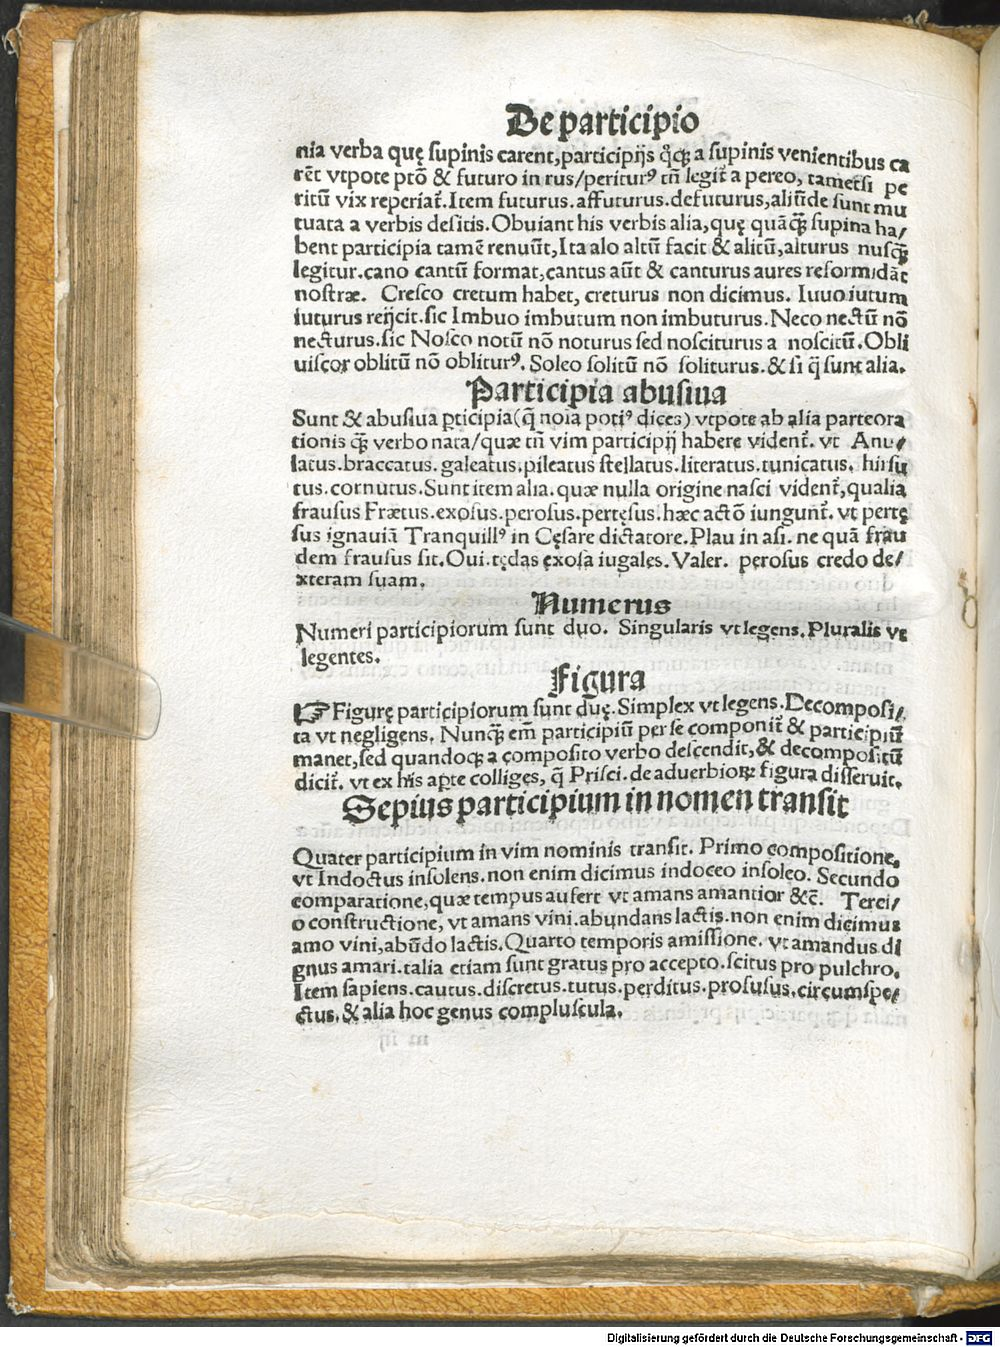 De participio
nia verba quę supinis carent,participijs q̊q̃ a supinis venientibus ca
rẽt vtpote ptõ & futuro in rus/periturꝰ tñ legit̃ a pereo, tametsi pe
ritũ vix reperiat̃.Item futurus.affuturus.defuturus,aliũde sunt mu
tuata a verbis desitis.Obuiant his verbis alia,quę quãq̃ supina ha/
bent participia tamẽ renuũt,Ita alo altũ facit & alitũ,alturus nusq̃
legitur.cano cantũ format,cantus aũt & canturus aures reformidãt
nostræ. Cresco cretum habet, creturus non dicimus. Iuuo iutum
iuturus reijcit.sic Imbuo imbutum non imbuturus.Neco nectũ nõ
necturus.sic Nosco notũ nõ noturus sed nosciturus a noscitũ.Obli
uiscor oblitũ nõ obliturꝰ. Soleo solitũ nõ soliturus.& si q̃ sunt alia.
Participia abusiua
Sunt & abusiua pticipia(q̃ noia potiꝰ dices) vtpote ab alia parte ora
tionis q̃ verbo nata/quæ tñ vim participij habere vident̃. vt Anu/
latus.braccatus. galeatus.pileatus stellatus.literatus.tunicatus. hirsu
tus.cornutus.Sunt item alia.quæ nulla origine nasci vident̃,qualia
frausus Frætus.exosus.perosus.pertęsus.hæc actõ iungunt̃. vt pertę
sus ignauiã Tranquillꝰ in Cęsare dictatore.Plau in asi. ne quã frau
dem frausus sit.Oui.tędas exosa iugales. Valer. perosus credo de/
xteram suam.
Numerus
Numeri participiorum sunt duo. Singularis vt legens.Pluralis vt
legentes.
Figura
☞ Figurę participiorum sunt duę.Simplex vt legens.Decomposi/
ta vt negligens. Nunq̃ em̃ participiũ per se componit̃ & participiũ
manet,sed quandoq; a composito verbo descendit,& decompositũ
dicit̃. vt ex his apte colliges, q̃ Prisci. de aduerbioꝝ figura disseruit.
Sepius participium in nomen transit
Quater participium in vim nominis transit. Primo compositione.
vt Indoctus insolens.non enim dicimus indoceo insoleo. Secundo
comparatione,quæ tempus aufert vt amans amantior &c̃. Terci/
o constructione, vt amans vini.abundans lactis.non enim dicimus
amo vini,abũdo lactis.Quarto temporis amissione. vt amandus di
gnus amari.talia etiam sunt gratus pro accepto.scitus pro pulchro.
Item sapiens.cautus.discretus.tutus.perditus.profusus.circumspe/
ctus.& alia hoc genus compluscula.
Digitalisierung gefördert durch die Deutsche Forschungsgemeinschaft - DFG